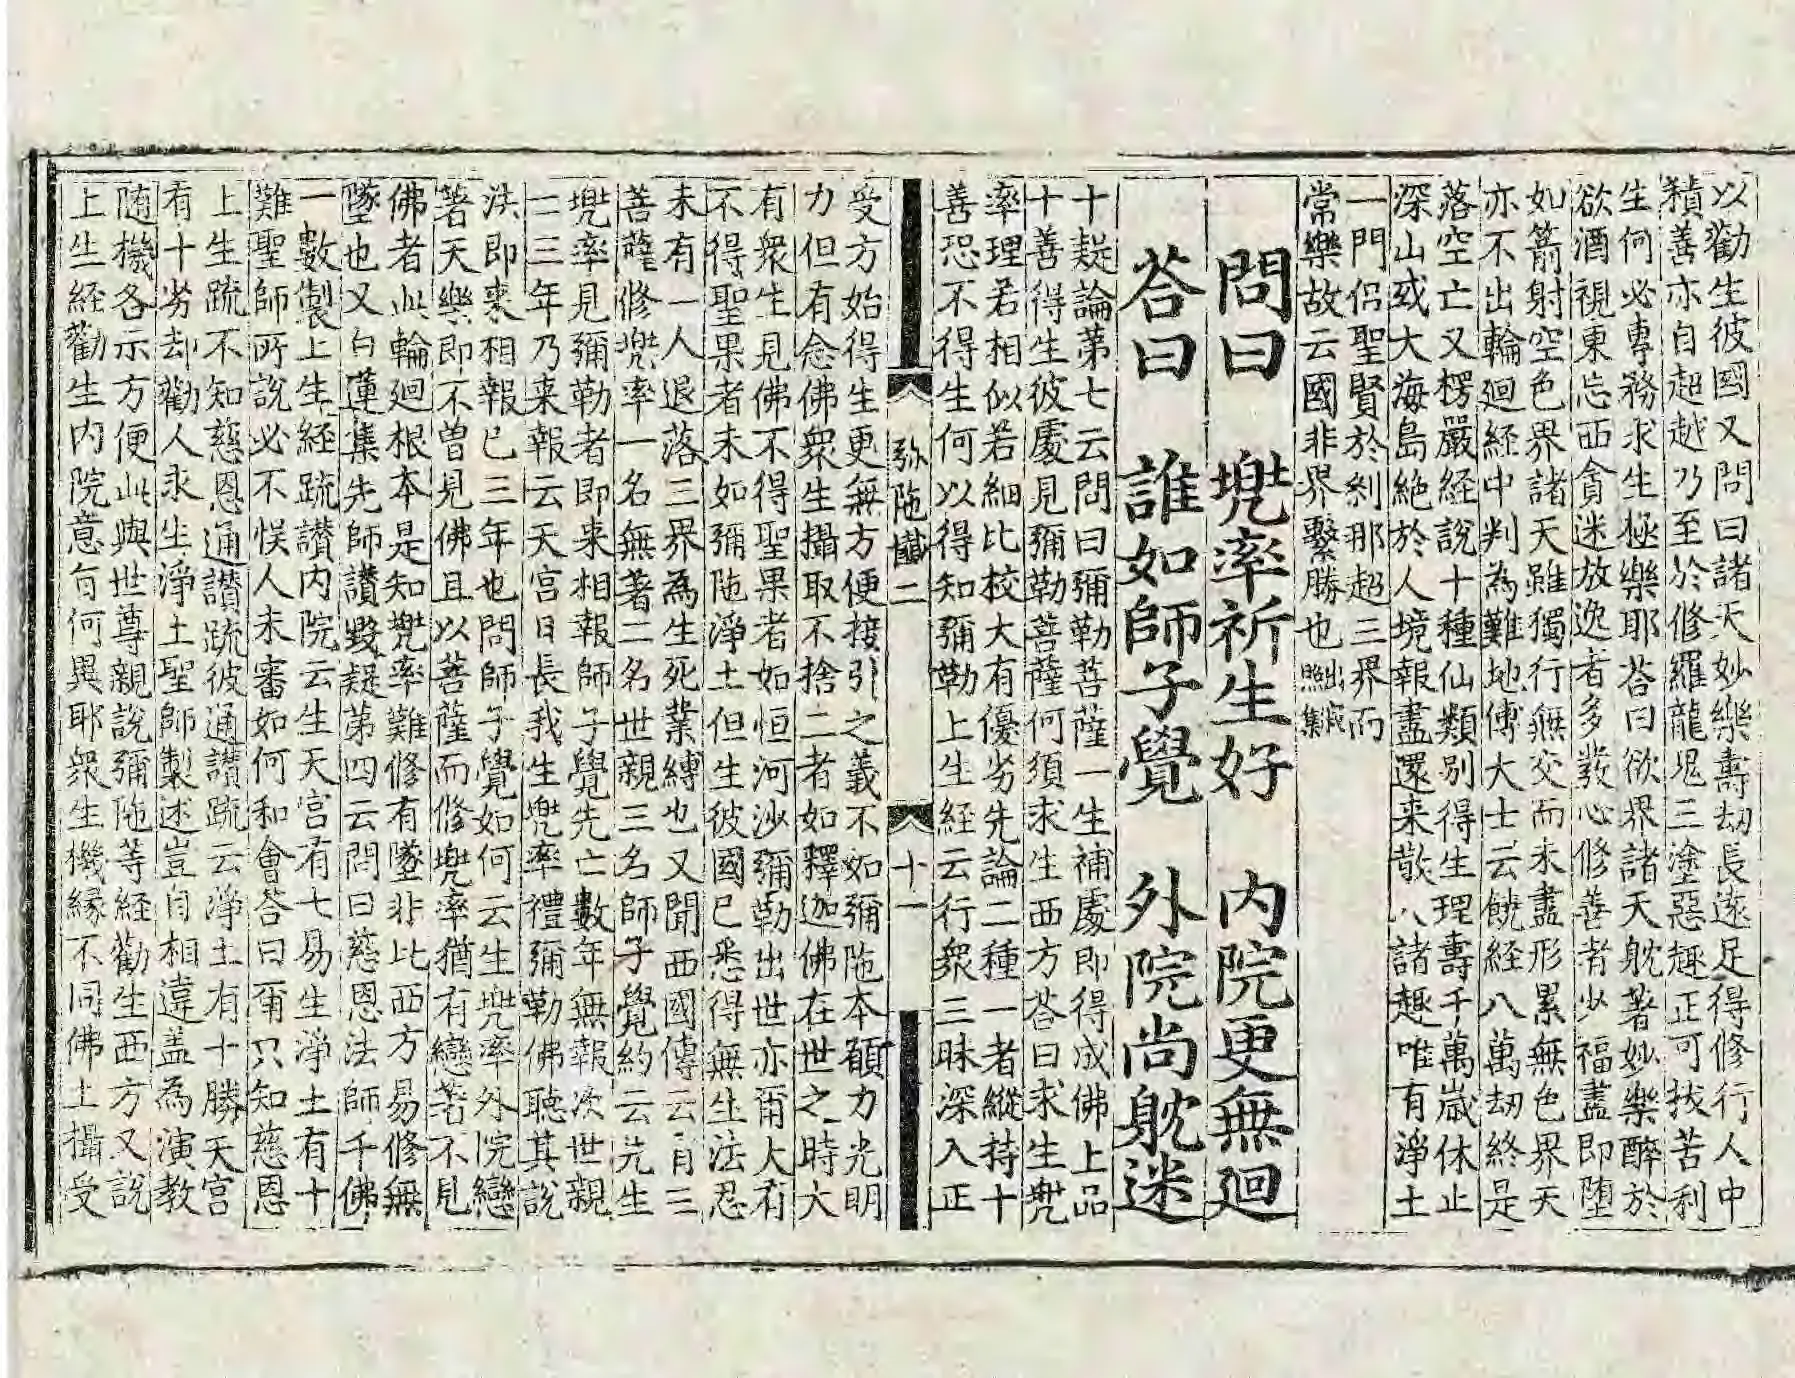 以勸生彼國又問曰諸天妙樂壽劫長遠足得修行人中
積善亦自超越乃至於修羅龍鬼三塗惡趣正可拔苦利
生何必專務求生極樂耶荅曰欲界諸天躭著妙樂醉於
欲酒視東忘西貪迷放逸者多發心修善者少福盡即墮
如箭射空色界諸天雖獨行無交而未盡形累無色界天
亦不出輪廻経中判為難地傅大士云饒経八萬劫終是
落空亡又楞嚴経說十種仙類別得生理壽千萬歲休止
深山或大海島絶於人境報盡還来散八諸趣唯有淨土
一門侣聖賢於刹那超三界而
常樂故云國非界繫勝也出寂照集
問曰 兠率祈生好 内院更無廻
荅曰 誰如師子覺 外院尚躭迷
十疑論第七云問曰彌勒菩薩一生補處即得成佛上品
十善得生彼處見彌勒菩薩何須求生西方荅曰求生兠
率理若相似若細比校大有優劣先論二種一者縱持十
善恐不得生何以得知彌勒上生経云行衆三昧深入正
弥陁懺二 十一
受方始得生更無方便接引之義不如彌陁本願力光明
力但有念佛衆生攝取不捨二者如釋迦佛在世之時大
有衆生見佛不得聖果者如恒河沙彌勒出世亦爾大有
不得聖果者未如彌陁淨土但生彼國已悉得無生法忍
未有一人退落三界為生死業縛也又聞西國傳云有三
菩薩修兠率一名無著二名世親三名師子覺約云先生
兠率見彌勒者即来相報師子覺先亡數年無報次世親
一三年乃来報云天宮日長我生兠率禮彌勒佛聽其說
法即来相報已三年也問師子覺如何云生兠率外院戀
著天樂即不曾見佛且以菩薩而修兠率猶有戀著不見
佛者此輪廻根本是知兠率難修有墜非比西方易修無
墜也又白蓮集先師讃毀疑第四云問曰慈恩法師千佛
一數製上生経䟽讃内院云生天宮有七易生淨土有十
難聖師所說必不悞人未審如何和會荅曰爾只知慈恩
上生䟽不知慈恩通讃䟽彼通讃䟽云淨土有十勝天宮
有十劣却勸人求生淨土聖師製述豈自相違盖為演教
随機各示方便此與世尊親說彌陁等経勸生西方又說
上生経勸生内院意有何異耶衆生機縁不同佛土攝受